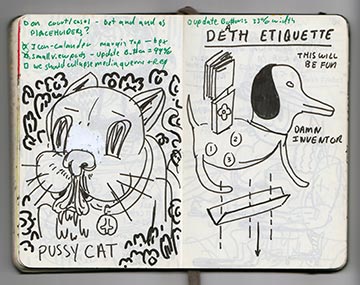 and as
PLACEHOLDERS?
Icon-calendar margin top
Small viewports - update Button = 99%
we should collapse media queries
PUSSY CAT
update Buttons 33% wider
A
DETH ETIQUETTE
THIS WILL
BE FUN
DAMN
INVENTOR
2
1
3